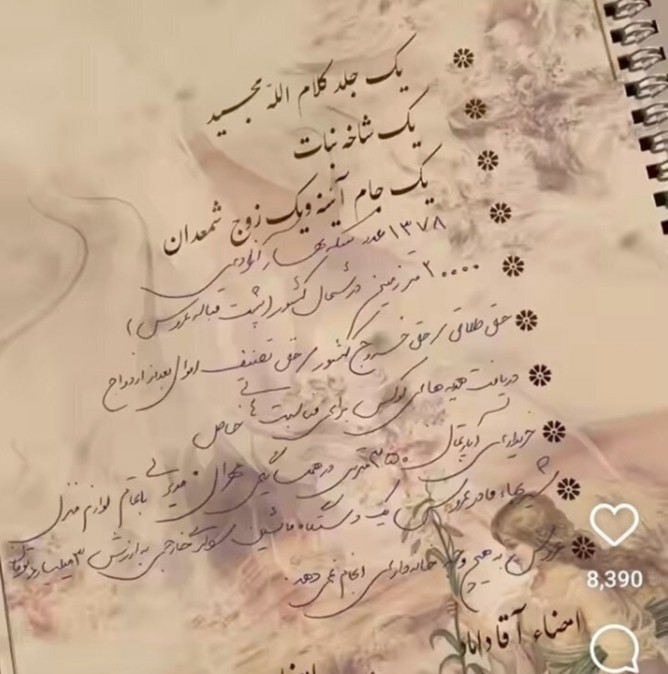 یک جلد کلام الله مجید
یک شاخه نبات
یک جام آینه و یک زوج شمعدان
۱۳۷۸ عدد سکه بهار آزادی
۲۰۰۰۰ متر زمین در شمال کشور (پشت قباله عروس)
حق طلاق، حق خروج کشور، حق تصنیف اموال بعد از ازدواج
دریافت هدیه های لوکس برای مناسبت های خاص
خریداری آپارتمان ۳۵۰ متری در تهران با تمام لوازم منزل
شیربهاء مادر عروس یک دستگاه ماشین خارجی به ارزش ۳ میلیارد تومان
عروس به هیچ وجه خانه داری انجام نمی دهد
امضاء آقا داماد
8,390